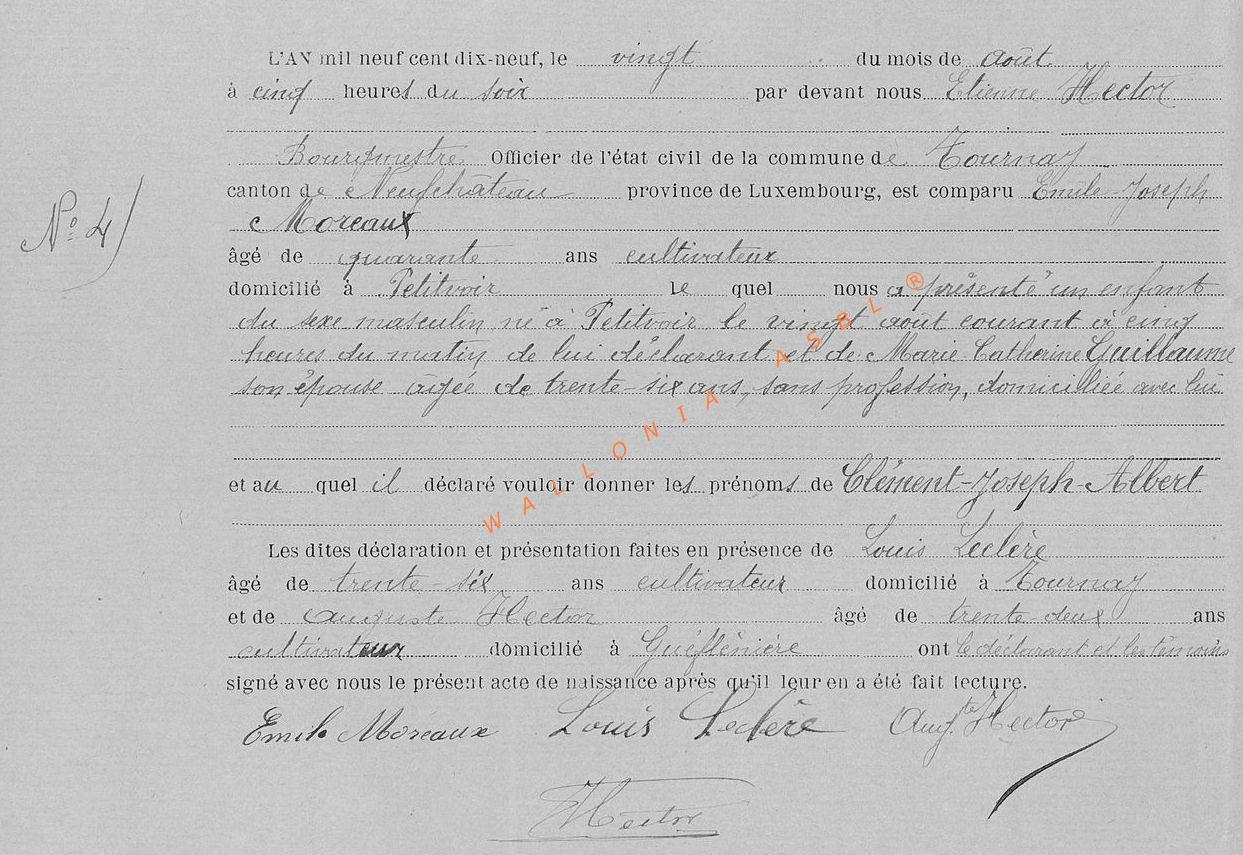 L'AN mil neuf cent dix-neuf, le vingt du mois de août
à cinq heures du soir par devant nous Etienne Hector
Bourgmestre Officier de l'état civil de la commune de Tournay
canton de Neufchâteau province de Luxembourg, est comparu Emile-Joseph
Nº 4
Moreaux
âgé de quarante ans cultivateur
domicilié à Petitvoir le quel nous a présenté un enfant
du sexe masculin né à Petitvoir le vingt août courant à cinq
heures du matin de lui déclarant et de Marie-Catherine Guillaume
son épouse âgée de trente-six ans, sans profession, domiciliée avec lui
et au quel il déclaré vouloir donner les prénoms de Clément-Joseph-Albert
Les dites déclaration et présentation faites en présence de Louis Leclère
âgé de trente-six ans cultivateur domicilié à Tournay
et de Auguste Hector âgé de trente-deux ans
cultivateur domicilié à ont le déclarant et les témoins
signé avec nous le présent acte de naissance après qu'il leur en a été fait lecture.
Emile Moreaux Louis Leclère Aug.te Hector
EHector
WALLONIA ASBL ®